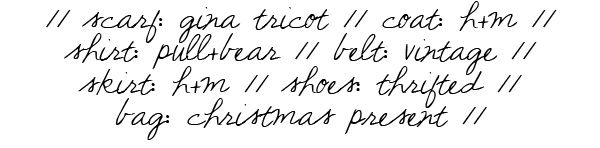 // scarf: gina tricot // coat: h+m //
shirt: pull+bear // belt: vintage //
skirt: h+m // shoes: thrifted //
bag: christmas present //